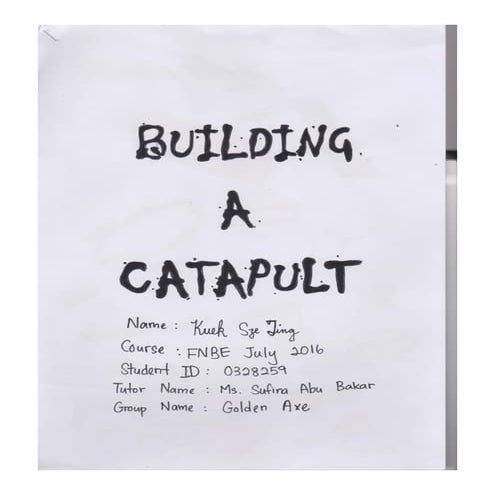 BUILDING
A
CATAPULT
Name : Kuek Sze Jing
Course : FNBE July 2016
Student ID : 0328259
Tutor Name : Ms. Sufira Abu Bakar
Group Name : Golden Axe